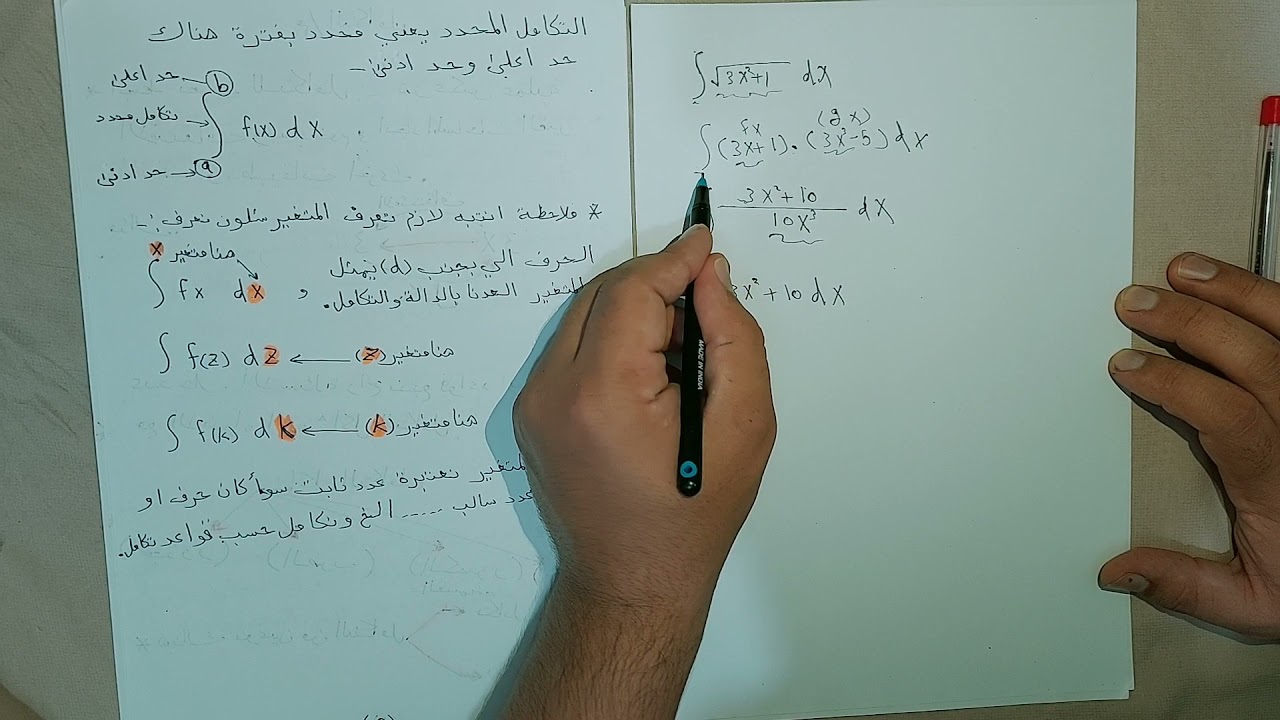 التكامل المحدد يعني محدد بفترة هناك
حد اعلى وحد ادنى -
حد اعلى b
تكامل محدد ∫ f(x) dx .
حد ادنى a
* ملاحظة انتبه لازم تعرف المتغير شلون نعرف !-
الحرف الي بجنب (d) يمثل
المتغير العدنا بالدالة والتكامل.
هنا متغير x
∫ fx dx و
∫ f(z) dz ← هنا متغير (z)
∫ f(k) dk ← هنا متغير (k)
المتغير نعتبرة عدد ثابت سواء كان حرف او
عدد سالب ..... الخ ونكامل حسب قواعد تكامل.
∫ √3x²+1 dx
fx (gx)
∫ (3x+1) . (3x²-5) dx
3x²+10
10x³ dx
3x² + 10 dx
MADE IN INDIA